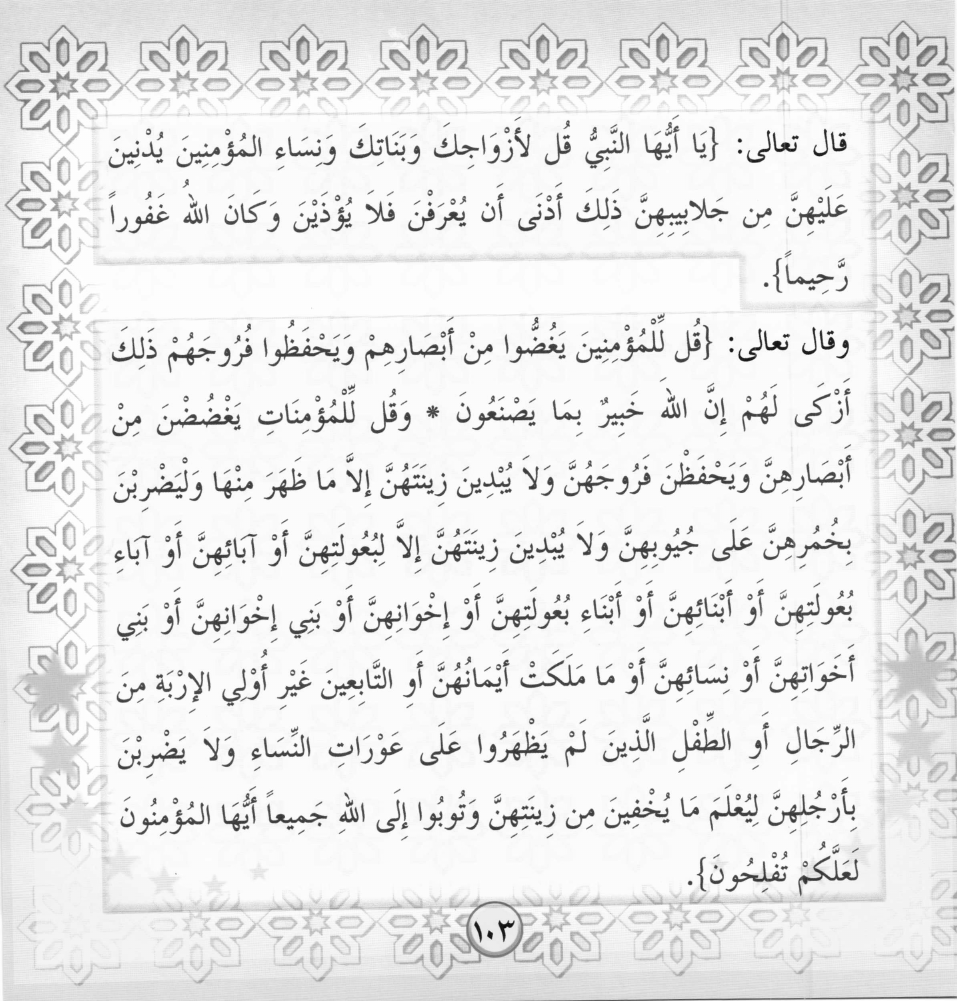 قال تعالى: {يَا أَيُّهَا النَّبِيُّ قُل لأَزْوَاجِكَ وَبَنَاتِكَ وَنِسَاءِ المُؤْمِنِينَ يُدْنِينَ
عَلَيْهِنَّ مِن جَلابِيبِهِنَّ ذَلِكَ أَدْنَى أَن يُعْرَفْنَ فَلاَ يُؤْذَيْنَ وَكَانَ اللهُ غَفُوراً
رَّحِيماً}.
وقال تعالى: {قُل لِّلْمُؤْمِنِينَ يَغُضُّوا مِنْ أَبْصَارِهِمْ وَيَحْفَظُوا فُرُوجَهُمْ ذَلِكَ
أَزْكَى لَهُمْ إِنَّ اللهَ خَبِيرٌ بِمَا يَصْنَعُونَ * وَقُل لِّلْمُؤْمِنَاتِ يَغْضُضْنَ مِنْ
أَبْصَارِهِنَّ وَيَحْفَظْنَ فُرُوجَهُنَّ وَلاَ يُبْدِينَ زِينَتَهُنَّ إِلاَّ مَا ظَهَرَ مِنْهَا وَلْيَضْرِبْنَ
بِخُمُرِهِنَّ عَلَى جُيُوبِهِنَّ وَلاَ يُبْدِينَ زِينَتَهُنَّ إِلاَّ لِبُعُولَتِهِنَّ أَوْ آبَائِهِنَّ أَوْ آبَاءِ
بُعُولَتِهِنَّ أَوْ أَبْنَائِهِنَّ أَوْ أَبْنَاءِ بُعُولَتِهِنَّ أَوْ إِخْوَانِهِنَّ أَوْ بَنِي إِخْوَانِهِنَّ أَوْ بَنِي
أَخَوَاتِهِنَّ أَوْ نِسَائِهِنَّ أَوْ مَا مَلَكَتْ أَيْمَانُهُنَّ أَوِ التَّابِعِينَ غَيْرِ أُوْلِي الإِرْبَةِ مِنَ
الرِّجَالِ أَوِ الطِّفْلِ الَّذِينَ لَمْ يَظْهَرُوا عَلَى عَوْرَاتِ النِّسَاءِ وَلاَ يَضْرِبْنَ
بِأَرْجُلِهِنَّ لِيُعْلَمَ مَا يُخْفِينَ مِن زِينَتِهِنَّ وَتُوبُوا إِلَى اللهِ جَمِيعاً أَيُّهَا المُؤْمِنُونَ
لَعَلَّكُمْ تُفْلِحُونَ}.
١٠٣